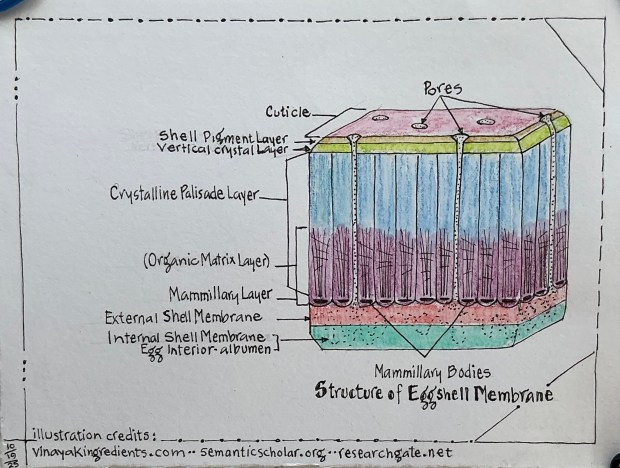 Pores
Cuticle
Shell Pigment Layer
Vertical crystal Layer
Crystalline Palisade Layer
(Organic Matrix Layer)
Mammillary Layer
External Shell Membrane
Internal Shell Membrane
Egg Interior-albumen
Mammillary Bodies
Structure of Eggshell Membrane
illustration credits:
vinayakingredients.com·· semanticscholar.org··researchgate.net